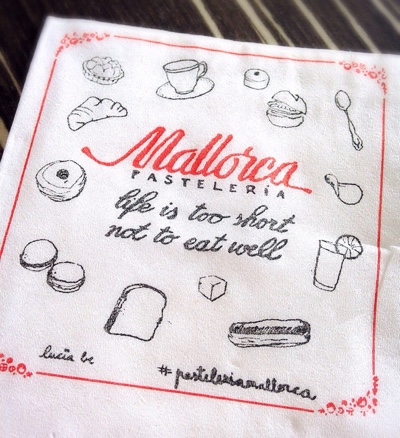 Mallorca
PASTELERÍA
life is too short
not to eat well
lucía be
#pasteleriamallorca